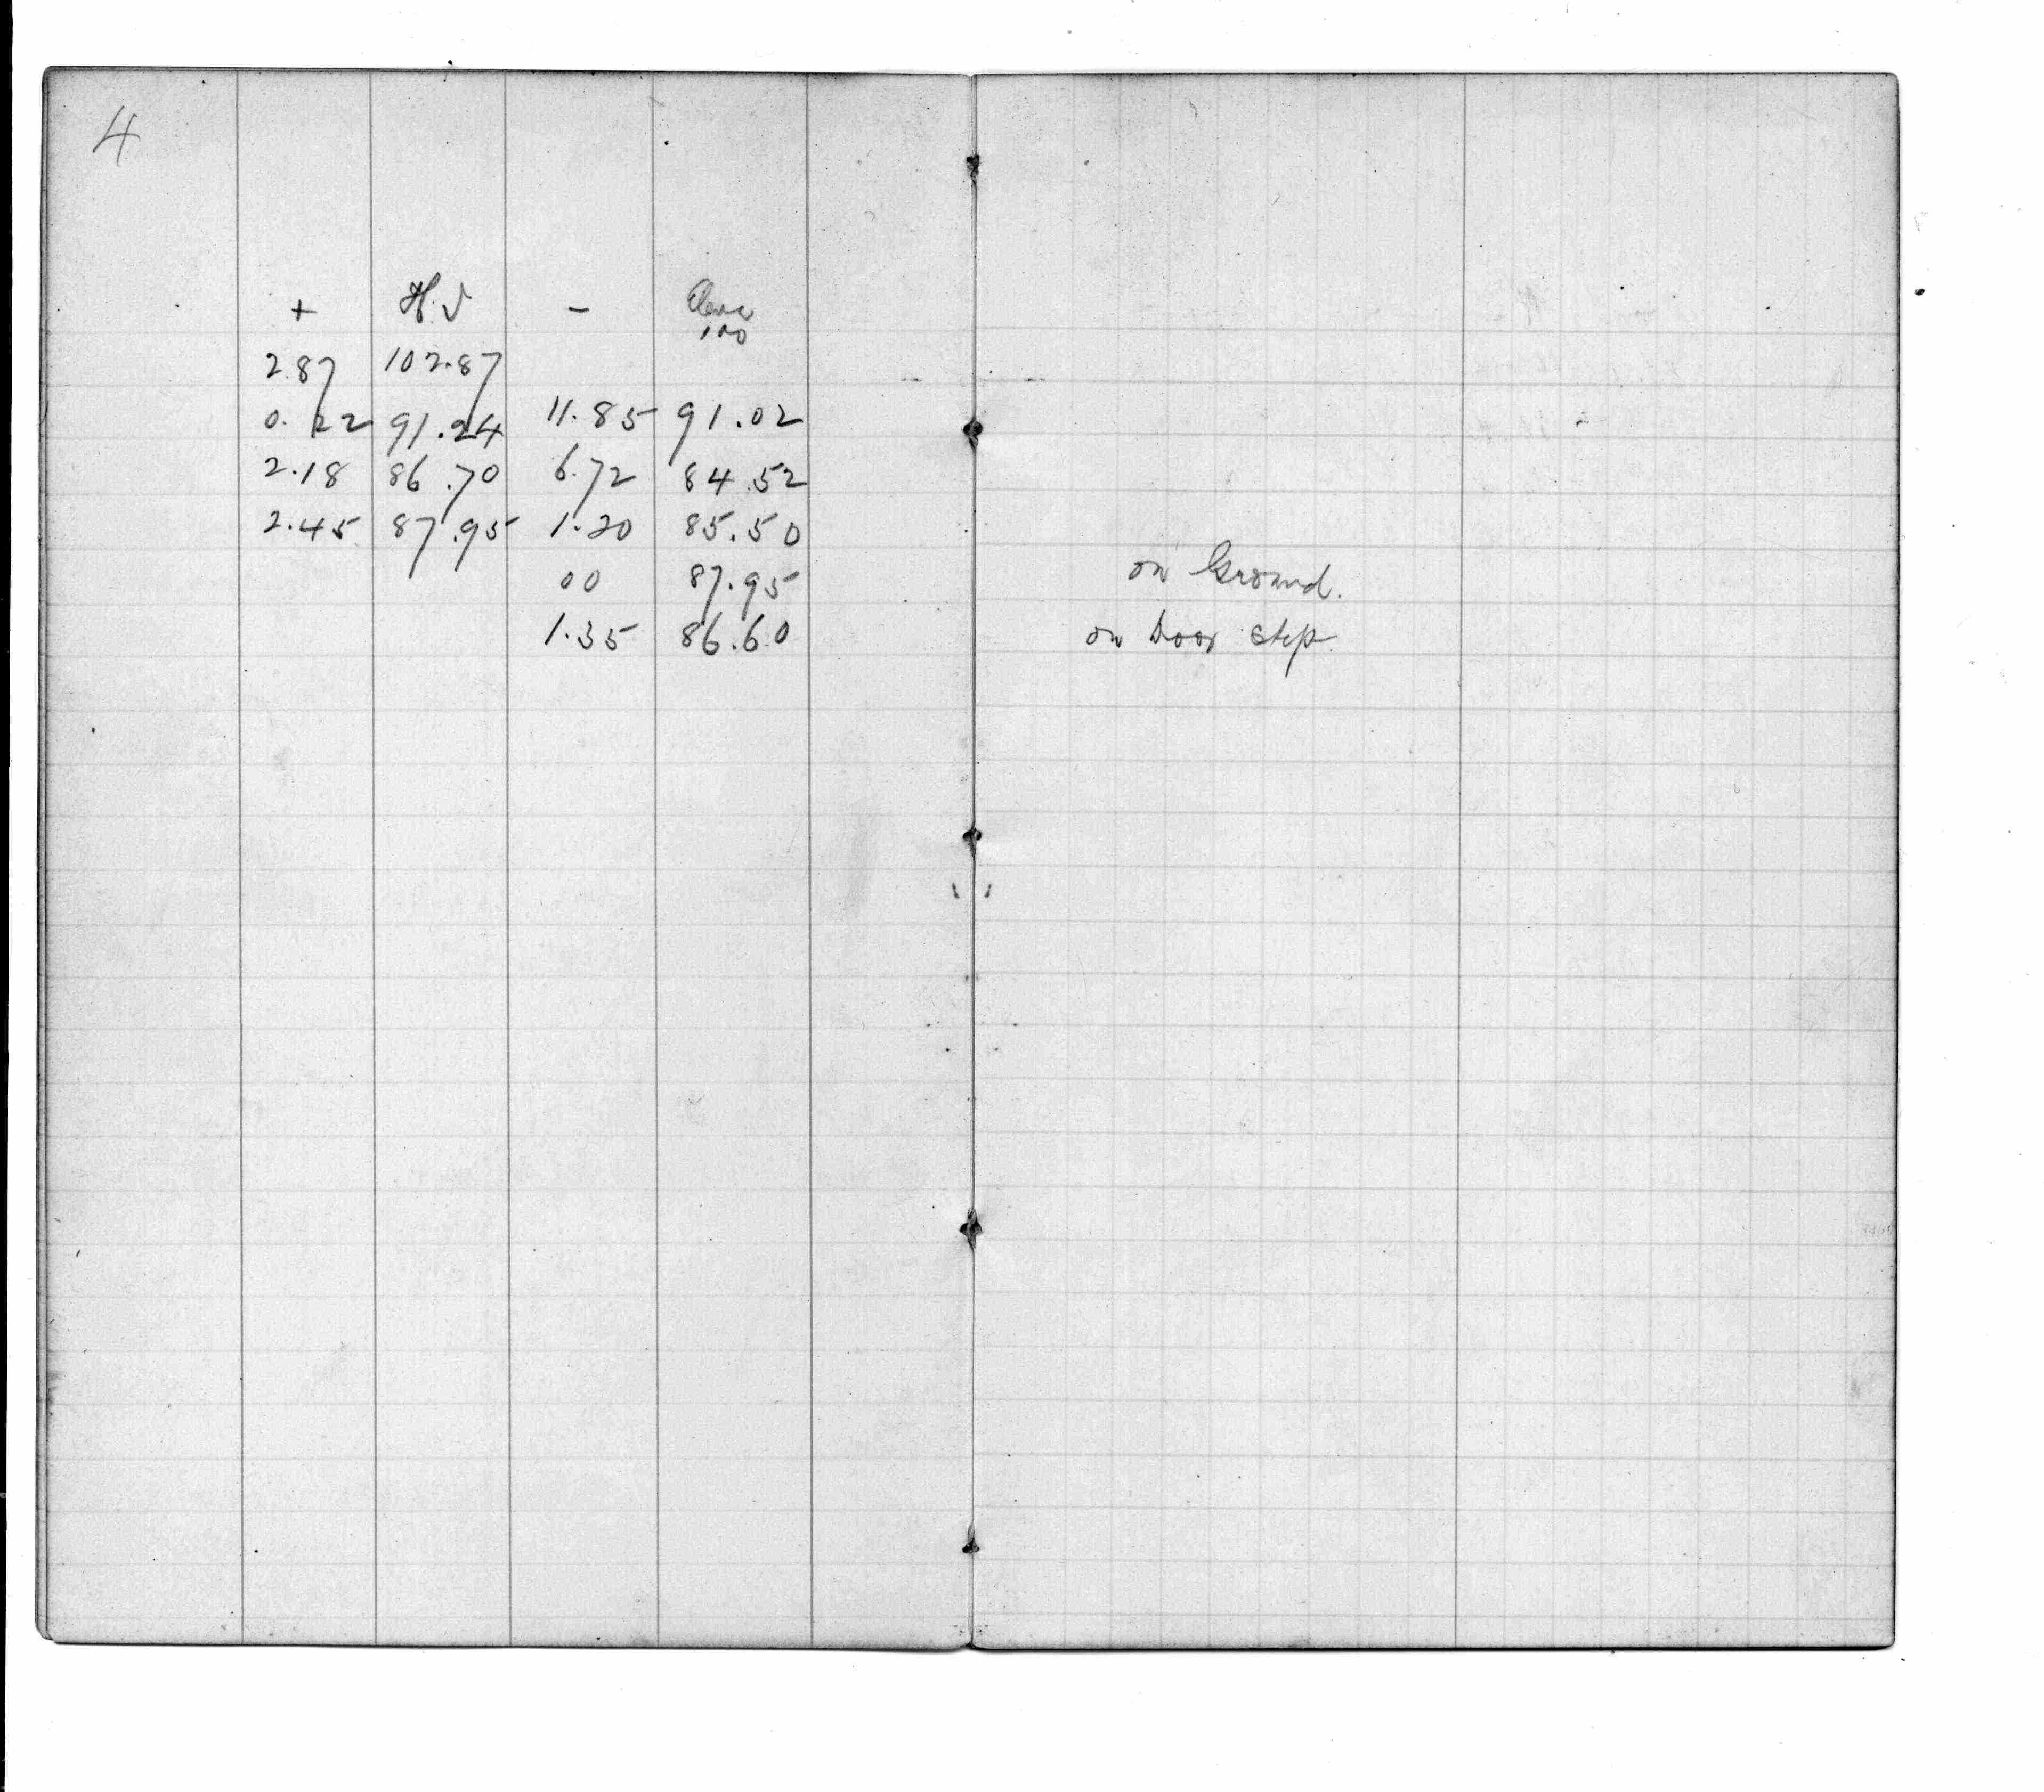 4
+ H.I - Elev
100
2.87 102.87
0.22 91.24 11.85 91.02
2.18 86.70 6.72 84.52
2.45 87.95 1.20 85.50
00 87.95 on Ground.
1.35 86.60 on Door step.